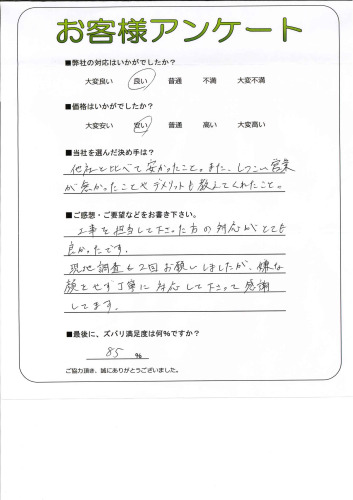 お客様アンケート
■弊社の対応はいかがでしたか?
大変良い 良い 普通 不満 大変不満
■価格はいかがでしたか?
大変安い 安い 普通 高い 大変高い
■当社を選んだ決め手は?
他社と比べて安かったこと。また、しつこい営業
が無かったことやデメリットも教えてくれたこと。
■ご感想・ご要望などをお書き下さい。
工事を担当して下さった方の対応がとても
良かったです。
現地調査も2回お願いしましたが、嫌な
顔もせず丁寧に対応して下さって感謝
してます。
■最後に、ズバリ満足度は何%ですか?
85 %
ご協力頂き、誠にありがとうございました。